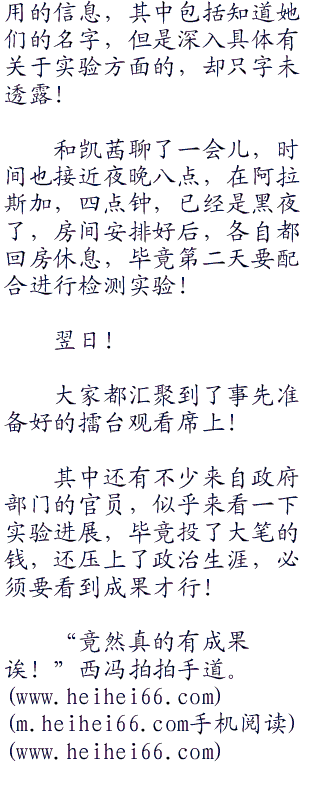 用的信息，其中包括知道她
们的名字，但是深入具体有
关于实验方面的，却只字未
透露！
和凯茜聊了一会儿，时
间也接近夜晚八点，在阿拉
斯加，四点钟，已经是黑夜
了，房间安排好后，各自都
回房休息，毕竟第二天要配
合进行检测实验！
翌日！
大家都汇聚到了事先准
备好的擂台观看席上！
其中还有不少来自政府
部门的官员，似乎来看一下
实验进展，毕竟投了大笔的
钱，还压上了政治生涯，必
须要看到成果才行！
“竟然真的有成果
诶！”西冯拍拍手道。
(www.heihei66.com)
(m.heihei66.com手机阅读)
(www.heihei66.com)